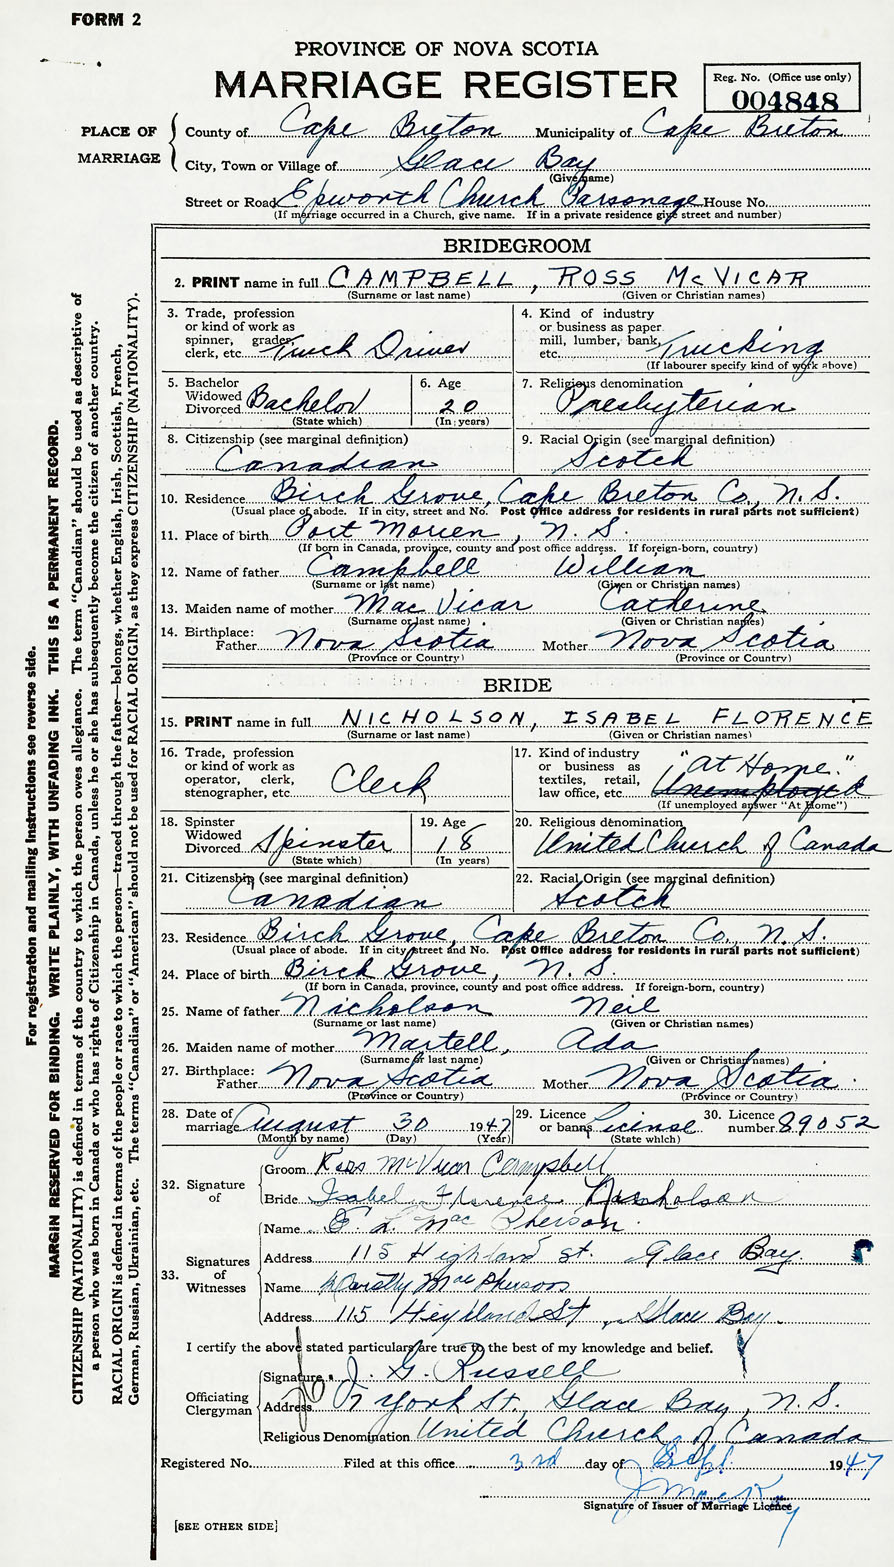 FORM 2
PROVINCE OF NOVA SCOTIA
MARRIAGE REGISTER
Reg. No. (Office use only)
004848
PLACE OF MARRIAGE
County of Cape Breton Municipality of Cape Breton
City, Town or Village of Glace Bay
(Give name)
Street or Road Epworth Church Parsonage House No.
(If marriage occurred in a Church, give name. If in a private residence give street and number)
BRIDEGROOM
2. PRINT name in full CAMPBELL, ROSS McVICAR
(Surname or last name) (Given or Christian names)
3. Trade, profession or kind of work as spinner, grader, clerk, etc. Truck Driver
4. Kind of industry or business as paper mill, lumber, bank, etc. Trucking
(If labourer specify kind of work above)
5. Bachelor Widowed Divorced Bachelor
(State which)
6. Age 20
(In years)
7. Religious denomination Presbyterian
8. Citizenship (see marginal definition) Canadian
9. Racial Origin (see marginal definition) Scotch
10. Residence Birch Grove, Cape Breton Co., N.S.
(Usual place of abode. If in city, street and No. Post Office address for residents in rural parts not sufficient)
11. Place of birth Port Morien, N.S.
(If born in Canada, province, county and post office address. If foreign-born, country)
12. Name of father Campbell William
(Surname or last name) (Given or Christian names)
13. Maiden name of mother MacVicar Catherine
(Surname or last name) (Given or Christian names)
14. Birthplace: Father Nova Scotia Mother Nova Scotia
(Province or Country) (Province or Country)
BRIDE
15. PRINT name in full NICHOLSON, ISABEL FLORENCE
(Surname or last name) (Given or Christian names)
16. Trade, profession or kind of work as operator, clerk, stenographer, etc. Clerk
17. Kind of industry or business as textiles, retail, law office, etc. "At Home." Unemployed
(If unemployed answer "At Home")
18. Spinster Widowed Divorced Spinster
(State which)
19. Age 18
(In years)
20. Religious denomination United Church of Canada
21. Citizenship (see marginal definition) Canadian
22. Racial Origin (see marginal definition) Scotch
23. Residence Birch Grove, Cape Breton Co., N.S.
(Usual place of abode. If in city street and No. Post Office address for residents in rural parts not sufficient)
24. Place of birth Birch Grove, N.S.
(If born in Canada, province, county and post office address. If foreign-born, country)
25. Name of father Nicholson Neil
(Surname or last name) (Given or Christian names)
26. Maiden name of mother Martell, Ada
(Surname or last name) (Given or Christian names)
27. Birthplace: Father Nova Scotia Mother Nova Scotia.
(Province or Country) (Province or Country)
28. Date of marriage August 30 1947
(Month by name) (Day) (Year)
29. Licence or banns License
(State which)
30. Licence number 89052
32. Signature of
Groom Ross McVicar Campbell
Bride Isabel Florence Nicholson
33. Signatures of Witnesses
Name E. L. MacPherson.
Address 115 Highland St. Glace Bay.
Name Dorothy MacPherson
Address 115 Highland St, Glace Bay.
I certify the above stated particulars are true to the best of my knowledge and belief.
Officiating Clergyman
Signature J. G. Russell
Address York St, Glace Bay, N.S.
Religious Denomination United Church of Canada
Registered No. Filed at this office 3rd day of Sept. 1947
Signature of Issuer of Marriage Licence
[SEE OTHER SIDE]
For registration and mailing instructions see reverse side.
MARGIN RESERVED FOR BINDING. WRITE PLAINLY, WITH UNFADING INK. THIS IS A PERMANENT RECORD.
CITIZENSHIP (NATIONALITY) is defined in terms of the country to which the person owes allegiance. The term "Canadian" should be used as descriptive of
a person who was born in Canada or who has rights of Citizenship in Canada, unless he or she has subsequently become the citizen of another country.
RACIAL ORIGIN is defined in terms of the people or race to which the person—traced through the father—belongs, whether English, Irish, Scottish, French,
German, Russian, Ukrainian, etc. The terms "Canadian" or "American" should not be used for RACIAL ORIGIN, as they express CITIZENSHIP (NATIONALITY).